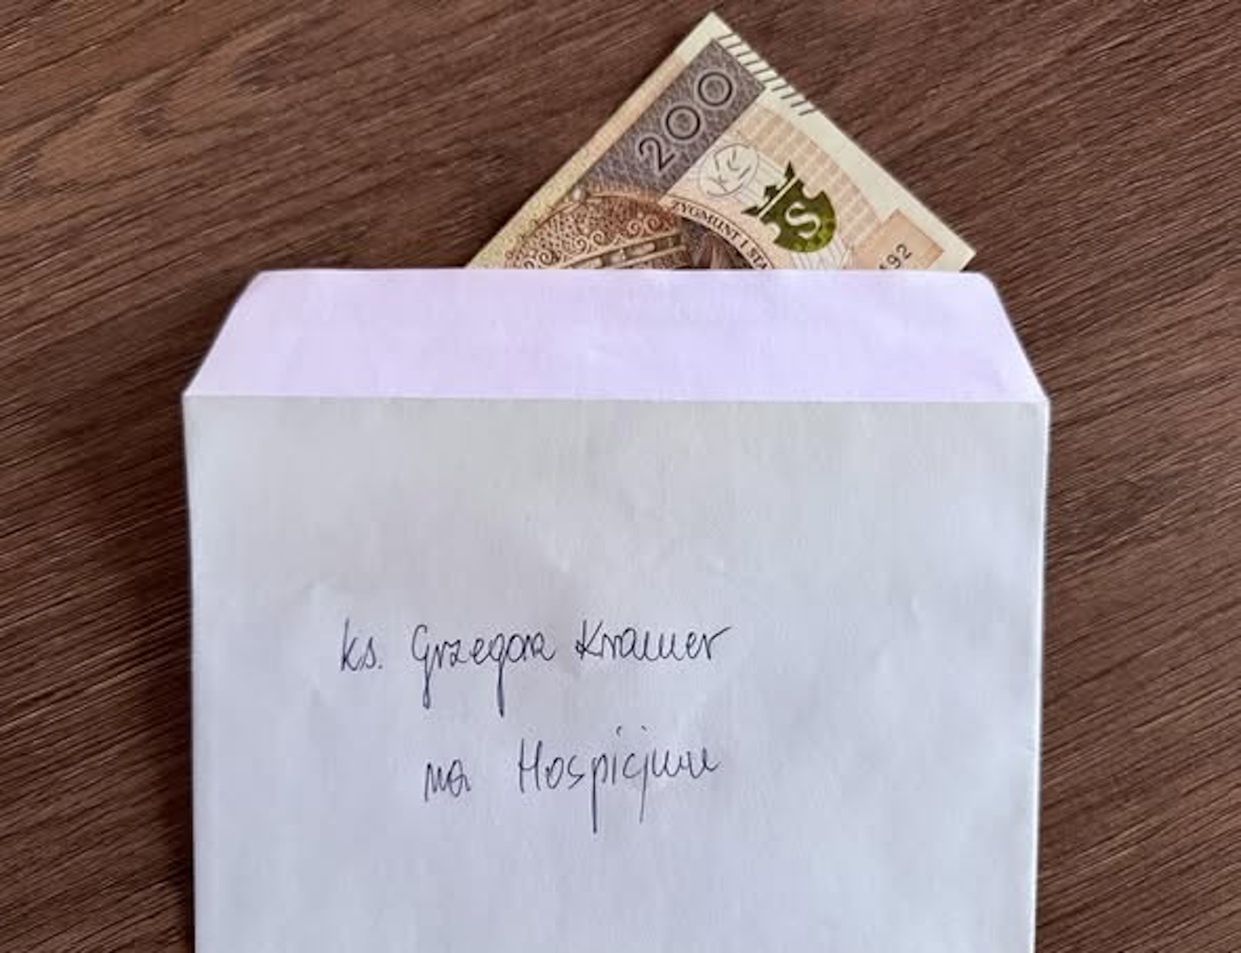 200
ZYGMUNT I STA
S
92
ks. Grzegorz Kramer
na Hospicjum